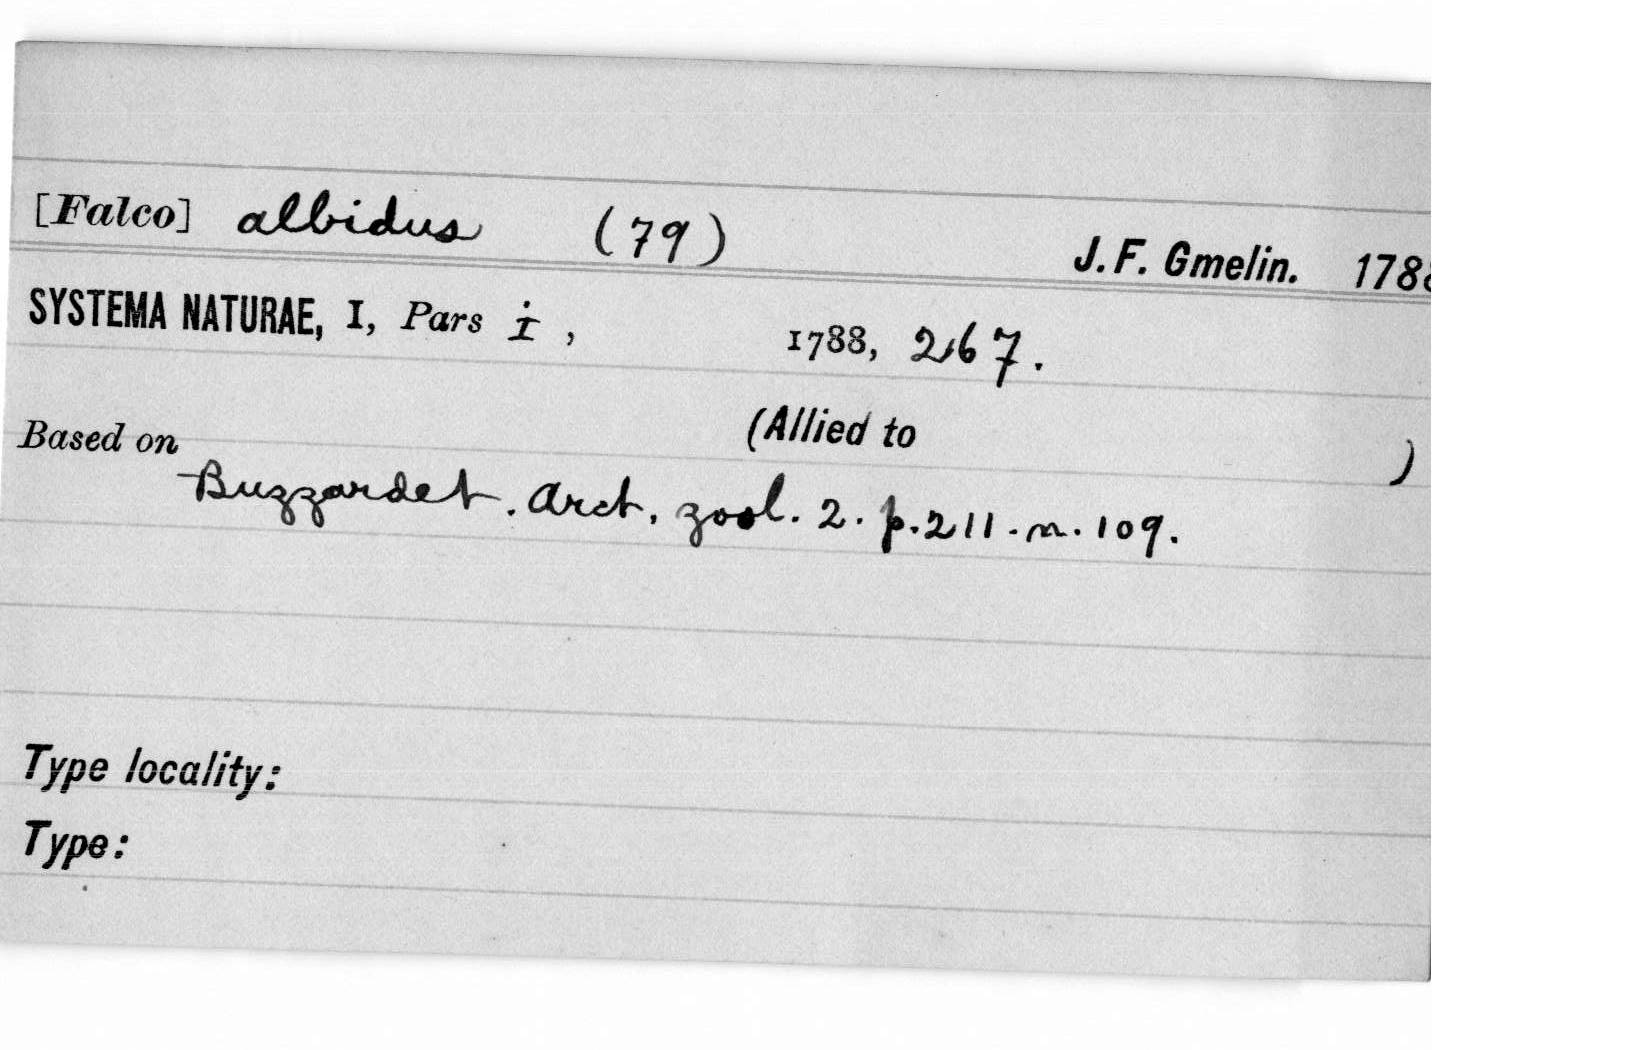 [Falco] albidus (79) J. F. Gmelin. 1788
SYSTEMA NATURAE, I, Pars i, 1788, 267.
Based on (Allied to )
Buzzardet. Arct. zool. 2. p. 211. n. 109.
Type locality:
Type: